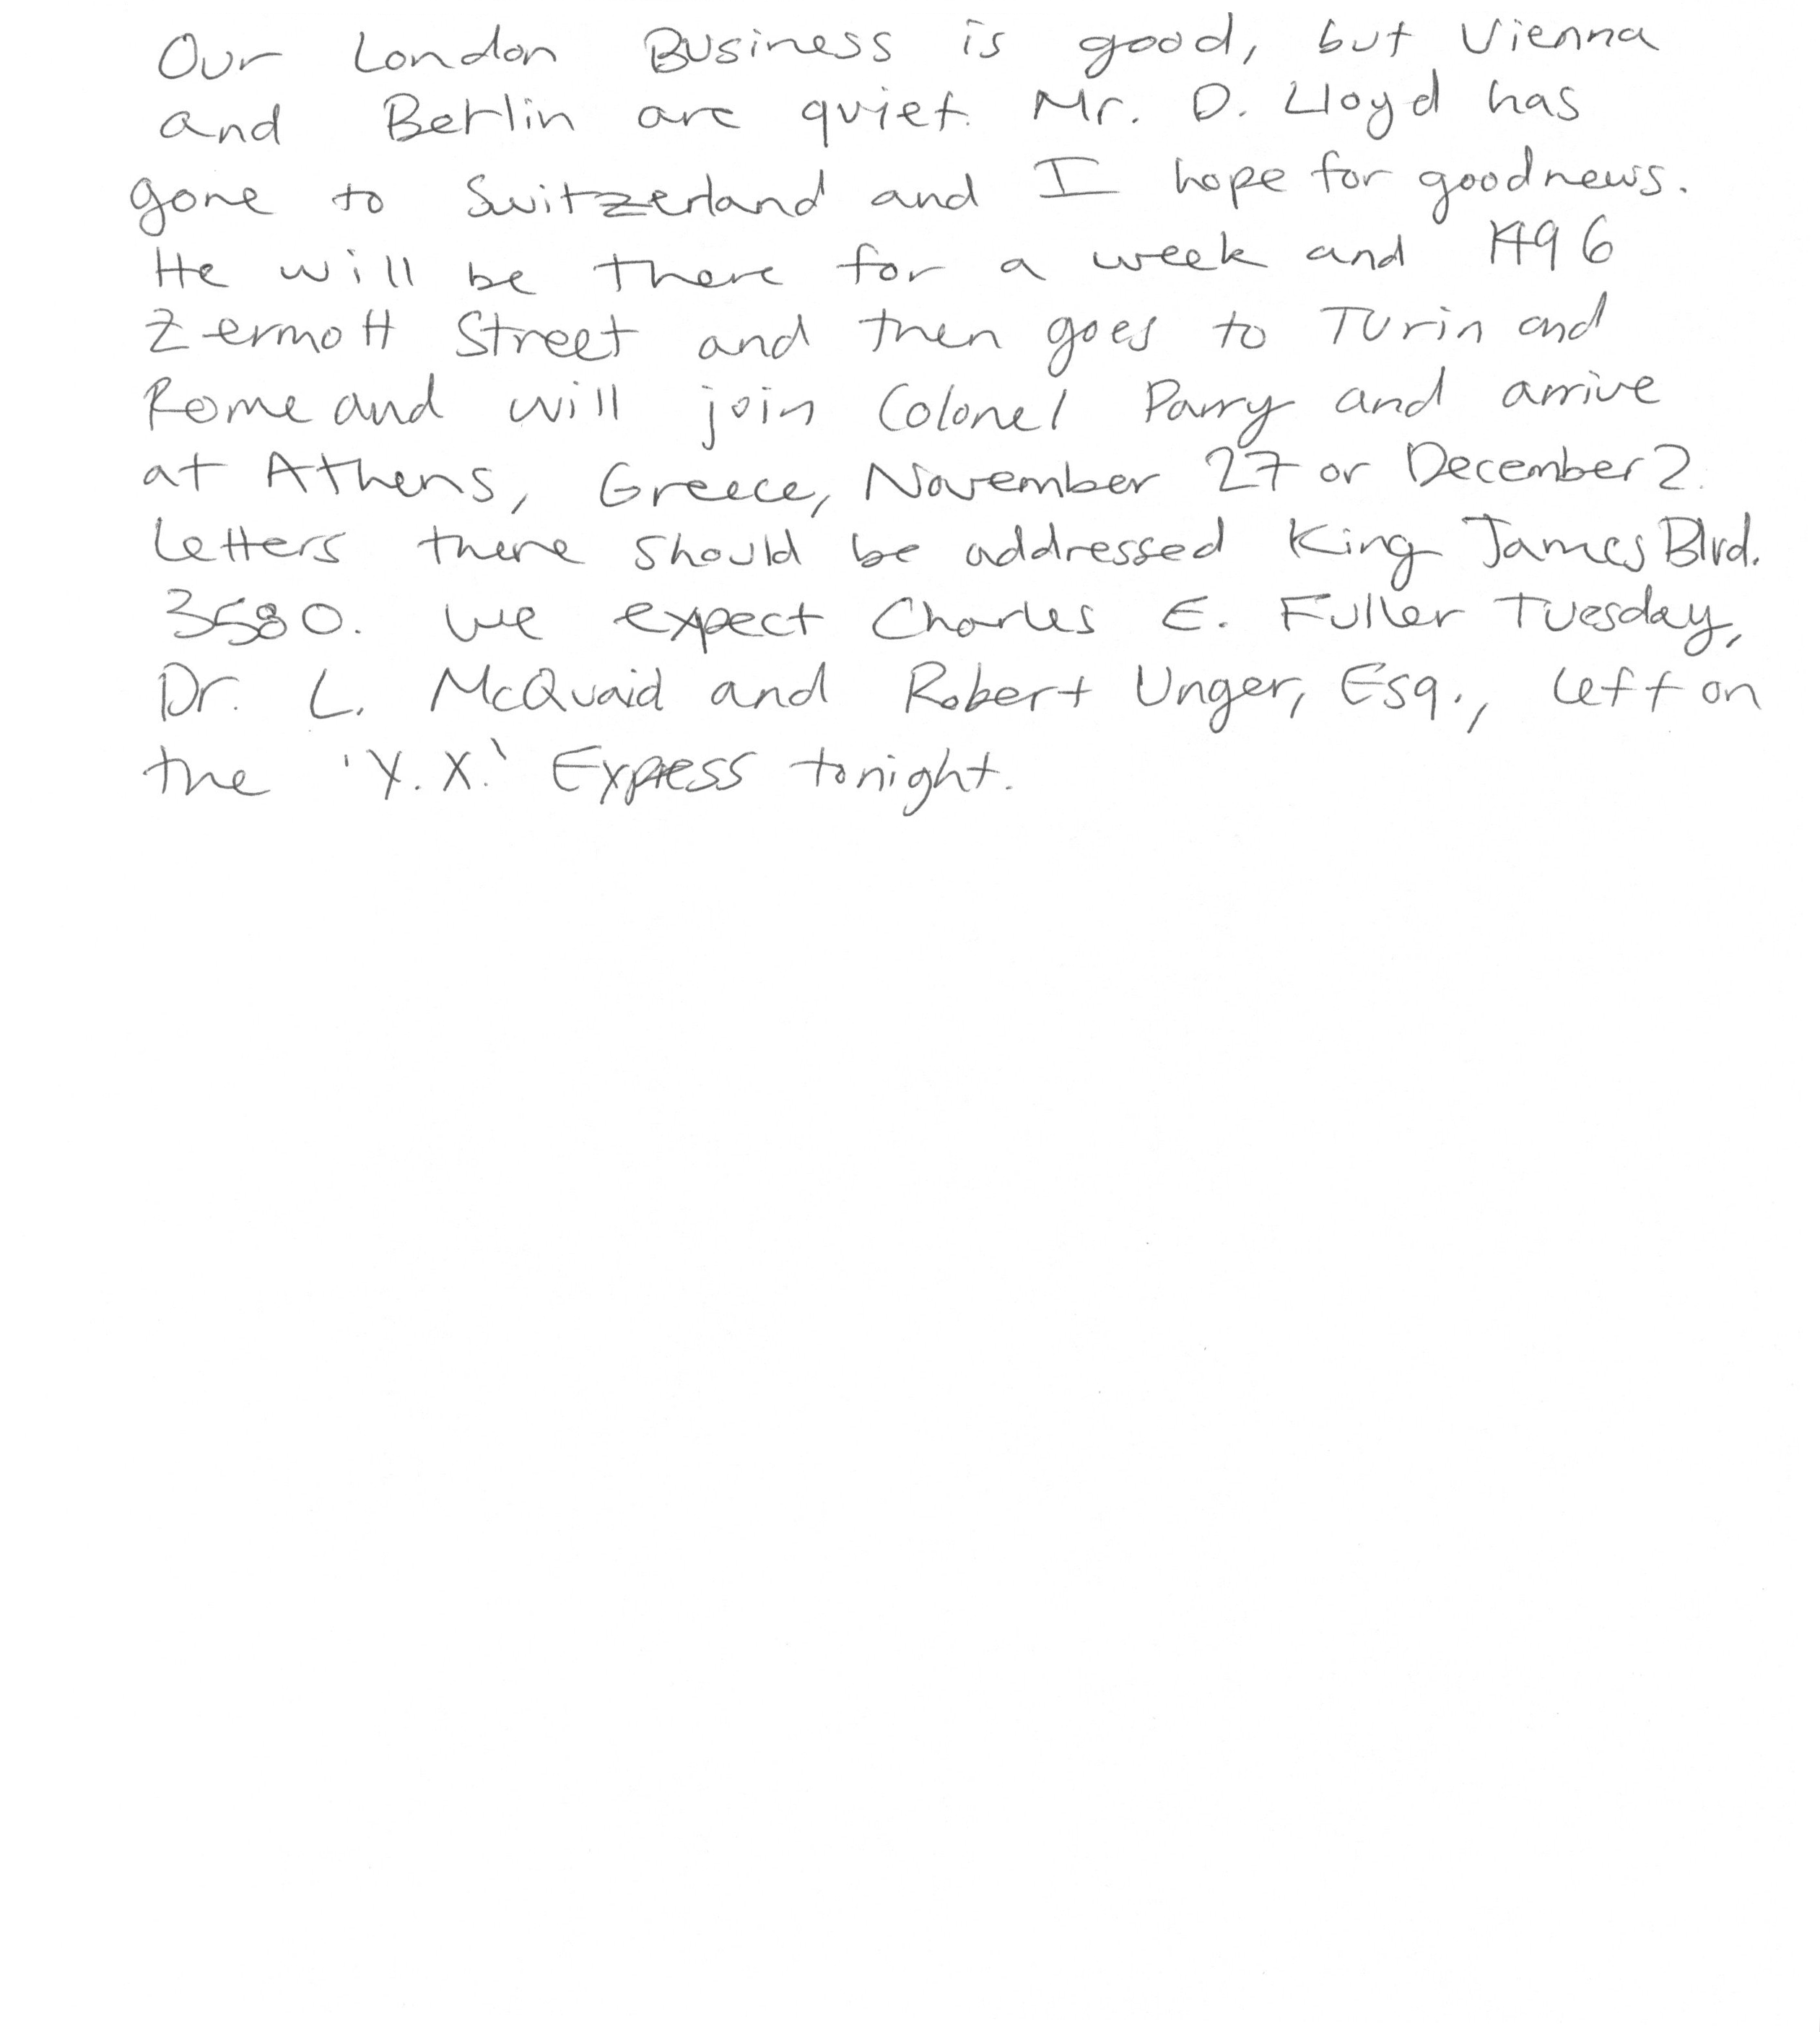 Our London Business is good, but Vienna
and Berlin are quiet. Mr. D. Lloyd has
gone to Switzerland and I hope for good news.
He will be there for a week and 1496
Zermott Street and then goes to Turin and
Rome and will join Colonel Parry and arrive
at Athens, Greece, November 27 or December 2.
Letters there should be addressed King James Blvd.
3580. We expect Charles E. Fuller Tuesday,
Dr. L. McQuaid and Robert Unger, Esq., left on
the 'Y.X.' Express tonight.